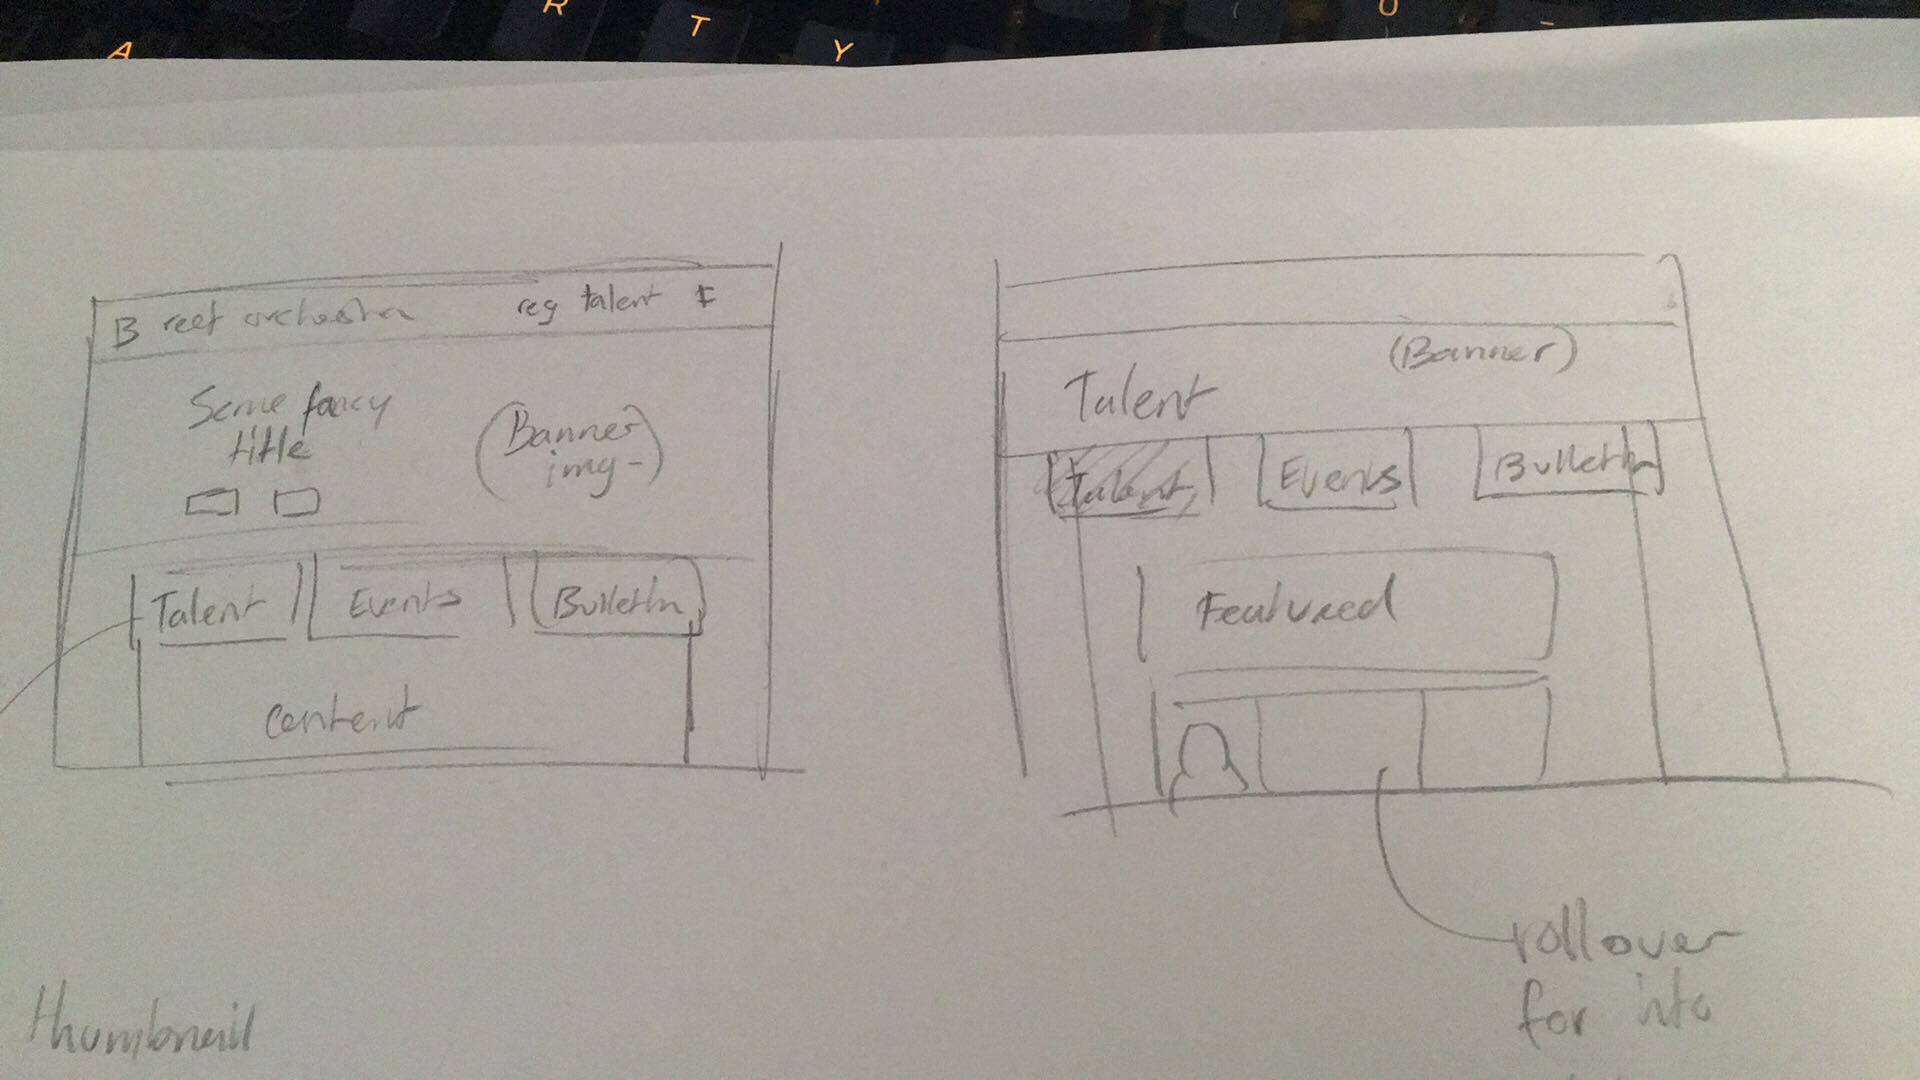 A R T Y U
B reef orchestra reg talent
Some fancy
title
(Banner
img-)
Talent Events Bulletin
Content
thumbnail
(Banner)
Talent
Talent Events Bulletin
Featured
rollover
for info